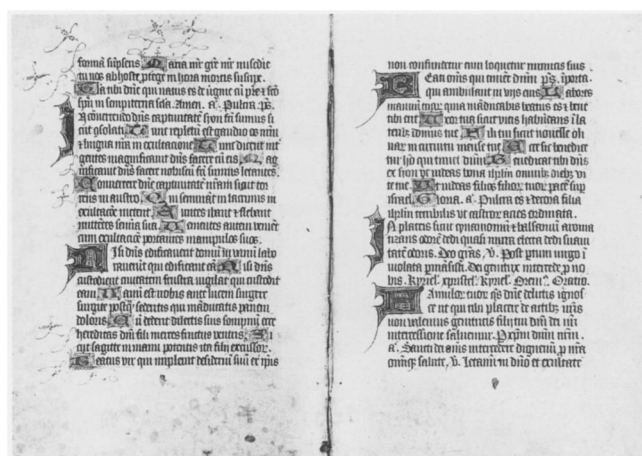 formā sūpseris. Maria mr̄ grē mr̄ miscdie
tu nos ab hoste ptege in hora mortis suscipe.
Gla tibi dn̄e qui natus es de v̄gine cū pr̄e & scō
spū in sempiterna scla. Amen. a. Pulcra. ps.
In cōvertendo dn̄s captivitatē syon fcī sumus si
cut cōsolati. Tūc repletū est gaudio os nr̄m
& lingua nr̄a in exultacione. Tūc dicent int̄
gentes magnificavit dn̄s facere cū eis. Mag
nificavit dn̄s facere nobiscū fcī sumus letantes.
Convertere dn̄e captivitatē nr̄am sicut tor
rens in austro. Qui seminant in lacrimis in
exultacōe metent. Euntes ibant & flebant
mittētes semīa sua. Venientes autem veniēt
cum exultacōe portantes manipulos suos.
Nisi dn̄s edificaverit domū in vanū labo
raverūt qui edificant eā. Nisi dn̄s
custodierit civitatem frustra vigilat qui custodit
eam. Vanū est vobis ante lucem surgere
surgite postq̄ sederitis qui māducatis panem
doloris. Cū dederit dilectis suis sompnū ecce
hereditas dn̄i filii merces fructus ventris. Si
cut sagitte in manu potentis ita filii excussor.
Beatus vir qui implevit desideriū suū ex ipīs
non confundetur cum loquetur inimicis suis
Beati om̄s qui timēt dn̄m ps. in porta.
qui ambulant in viis eius. Labores
manuū tuar̄ quia māducabis beatus es & bene
tibi erit. Uxor tua sicut vitis habūdans ī la
terib; domus tue. Filii tui sicut novelle oli
var̄ in circuitu mense tue. Ecce sic benedice
tur hō qui timet dn̄m. Benedicat tibi dn̄s
ex syon et videas bona ihrlm omnib; dieb; vi
te tue. Et videas filios filior̄ tuor̄ pacē sup
israel. Gloria. a. Pulcra es & decora filia
ihrlm terribilis ut castror̄ acies ordinata.
In plateis sicut cynamomū & balsamū aroma
tizans odorē dedi quasi mirra electa dedi suavi
tatē odoris. Deo grās. v. Post partum virgo ī
violata pmāsisti. Dei genitrix intercede p no
bis. Kyriel. xpristel. Kyriel. Orem̄. Oratio.
Famulor̄ tuor̄ qs dn̄e delictis ignos
ce ut qui tibi placere de actib; nr̄is
non valemus genitricis filii tui dn̄i dei nr̄i
intercessione salvemur. P xp̄m dn̄m nr̄m.
a. Sancti dei om̄s intercedere dignemī p nr̄a
omīq; salute. v. Letamī in dn̄o et exultate